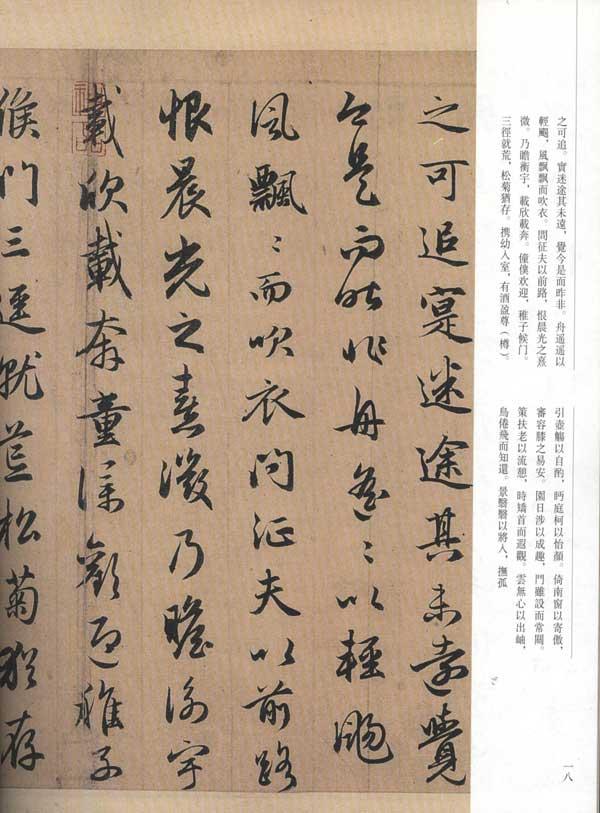 之可追。實迷途其未遠，覺今是而昨非。舟遥遥以
輕颺，風飄飄而吹衣。問征夫以前路，恨晨光之熹
微。乃瞻衡宇，載欣載奔。僮僕欢迎，稚子候门。
三徑就荒，松菊猶存。携幼入室，有酒盈尊（樽）。
引壺觴以自酌，眄庭柯以怡顔。倚南窗以寄傲，
審容膝之易安。園日涉以成趣，門雖設而常關。
策扶老以流憩，時矯首而遐觀。雲無心以出岫，
鳥倦飛而知還。景翳翳以將入，撫孤
一八
之可追寔迷途其未遠覺
今是而昨非舟遥〻以輕颺
風飄〻而吹衣問征夫以前路
恨晨光之熹微乃瞻衡宇
載欣載奔童僕歡迎稚子
候門三逕就荒松菊猶存